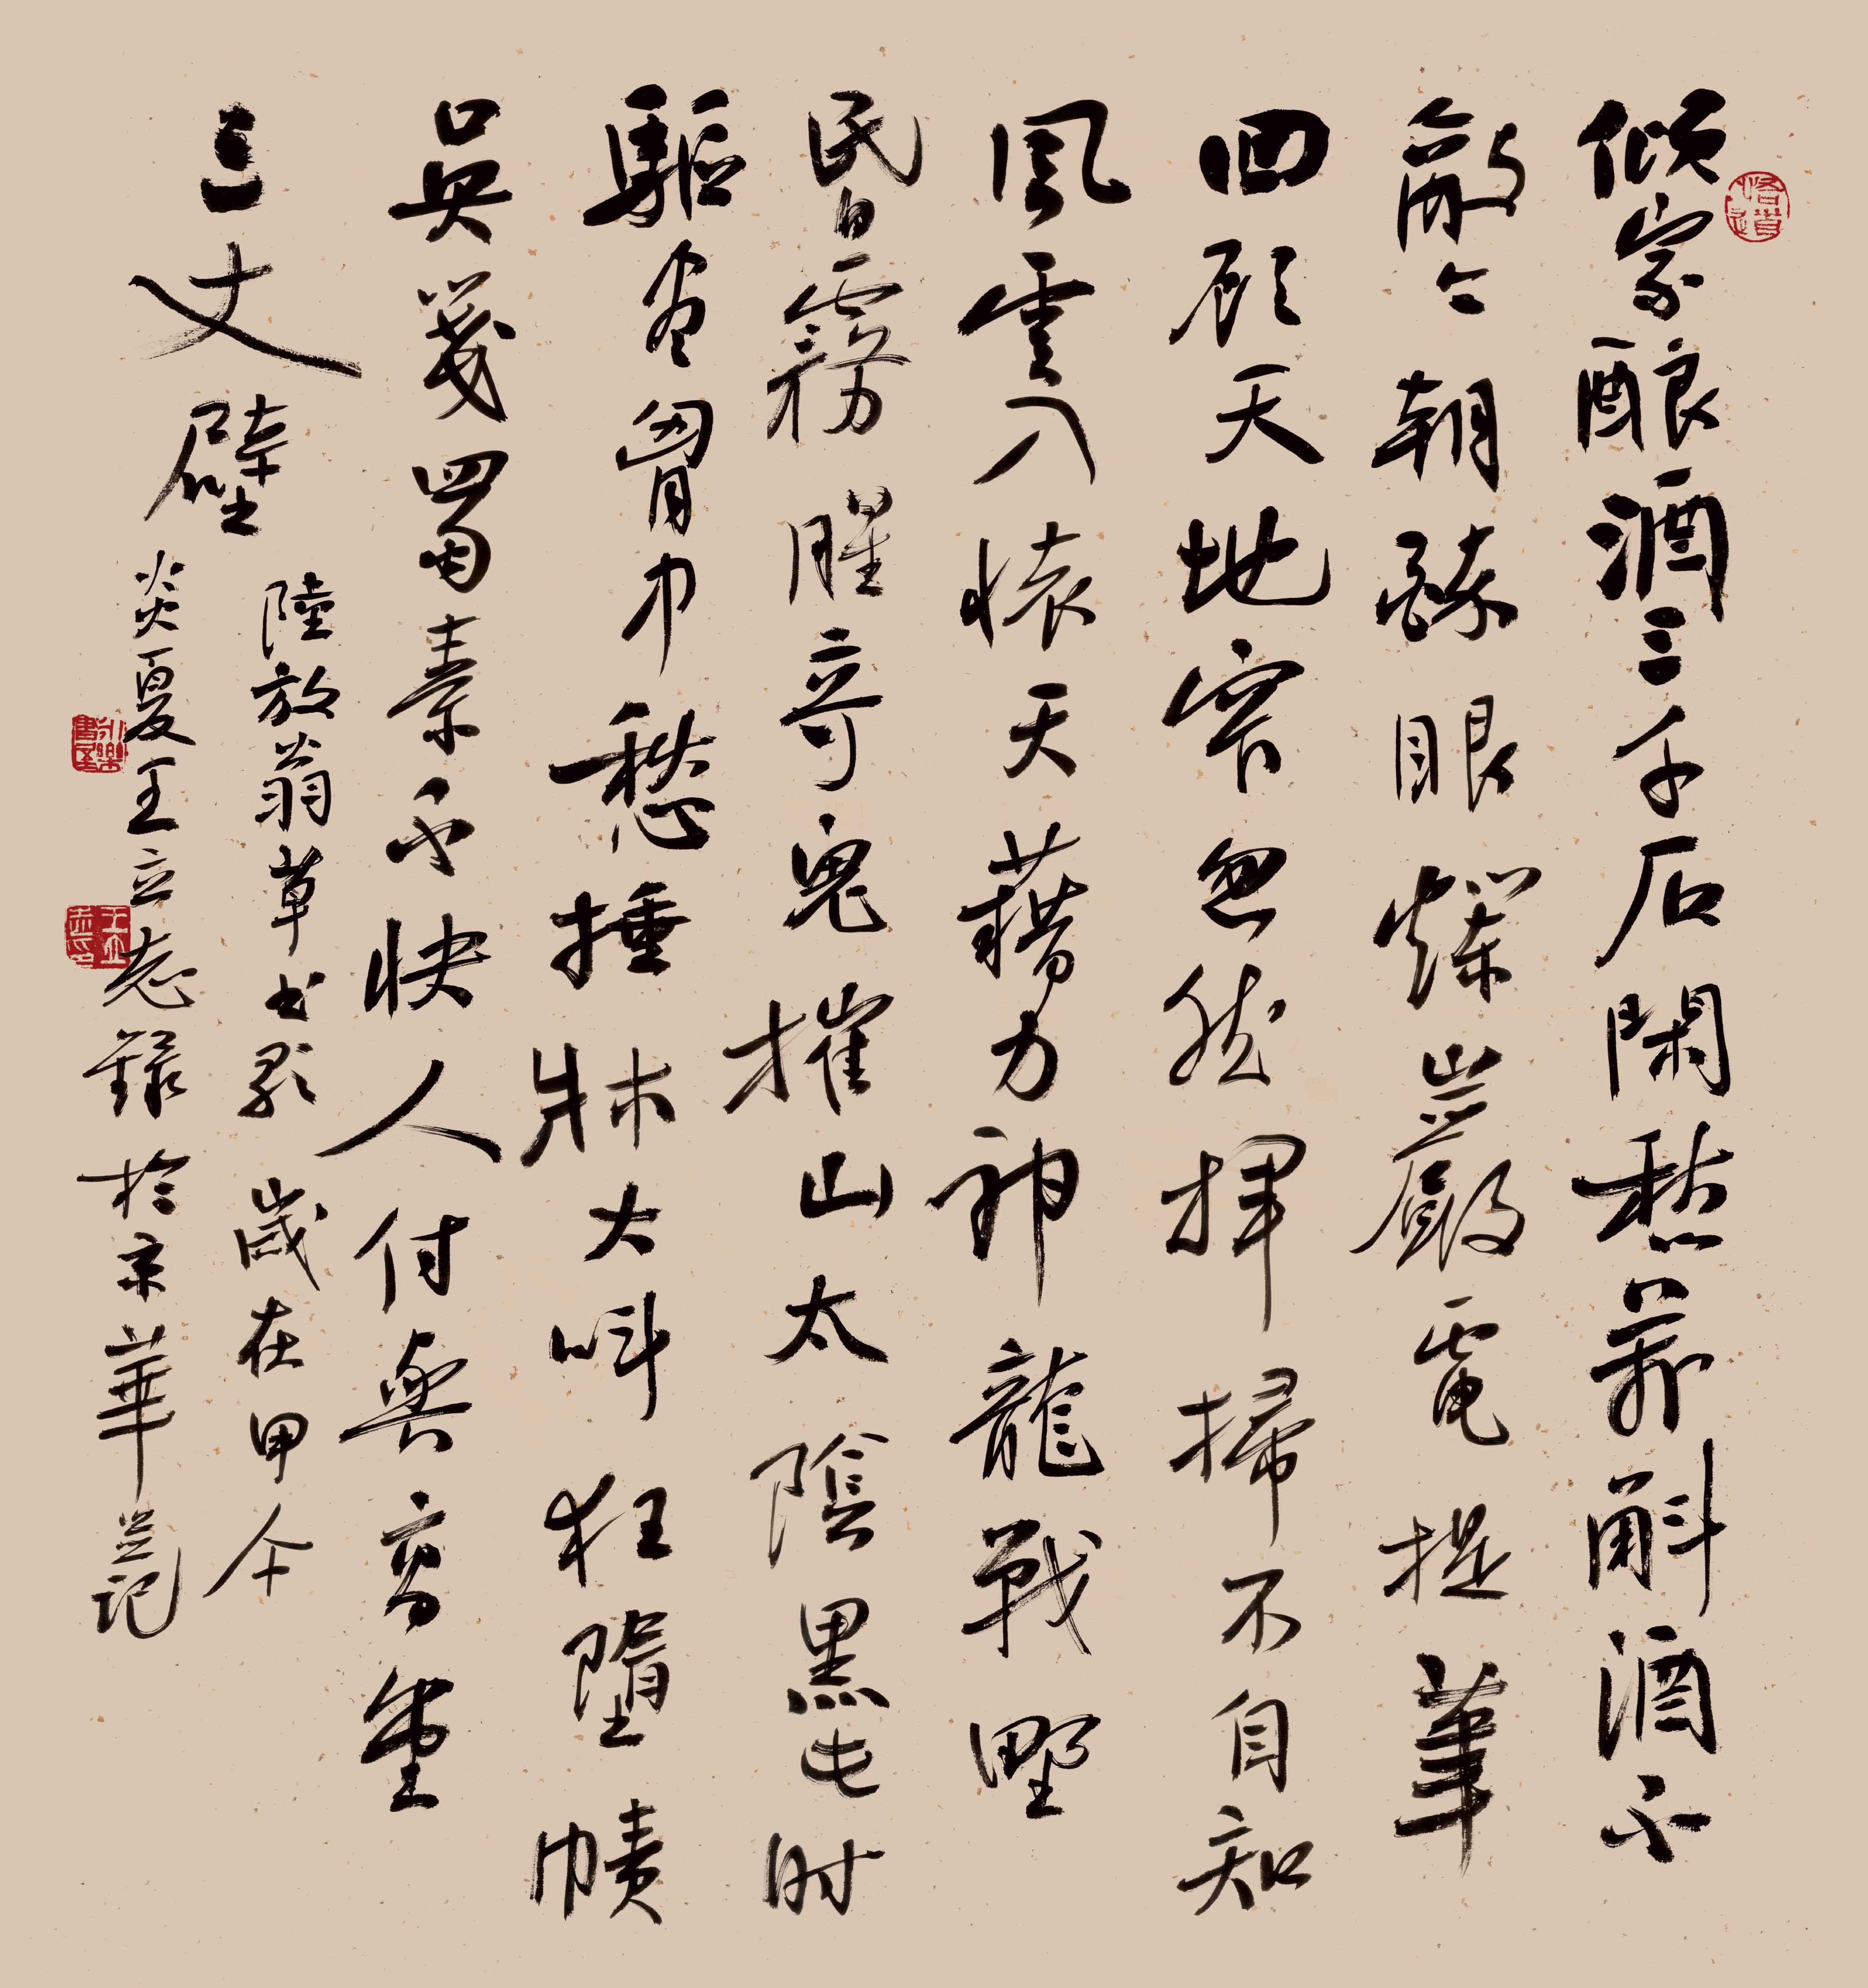 傾家釀酒三千石閑愁萬斛酒不
敵今朝醉眼爛巖電提筆
四顧天地窄忽然揮掃不自知
風雲入懷天藉力神龍戰野
昏霧腥奇鬼摧山太陰黑此時
驅盡胷中愁捶牀大叫狂墮幘
吳箋蜀素不快人付與高堂
三丈壁
陸放翁草書歌 歲在甲午
炎夏王立志錄於京華並記